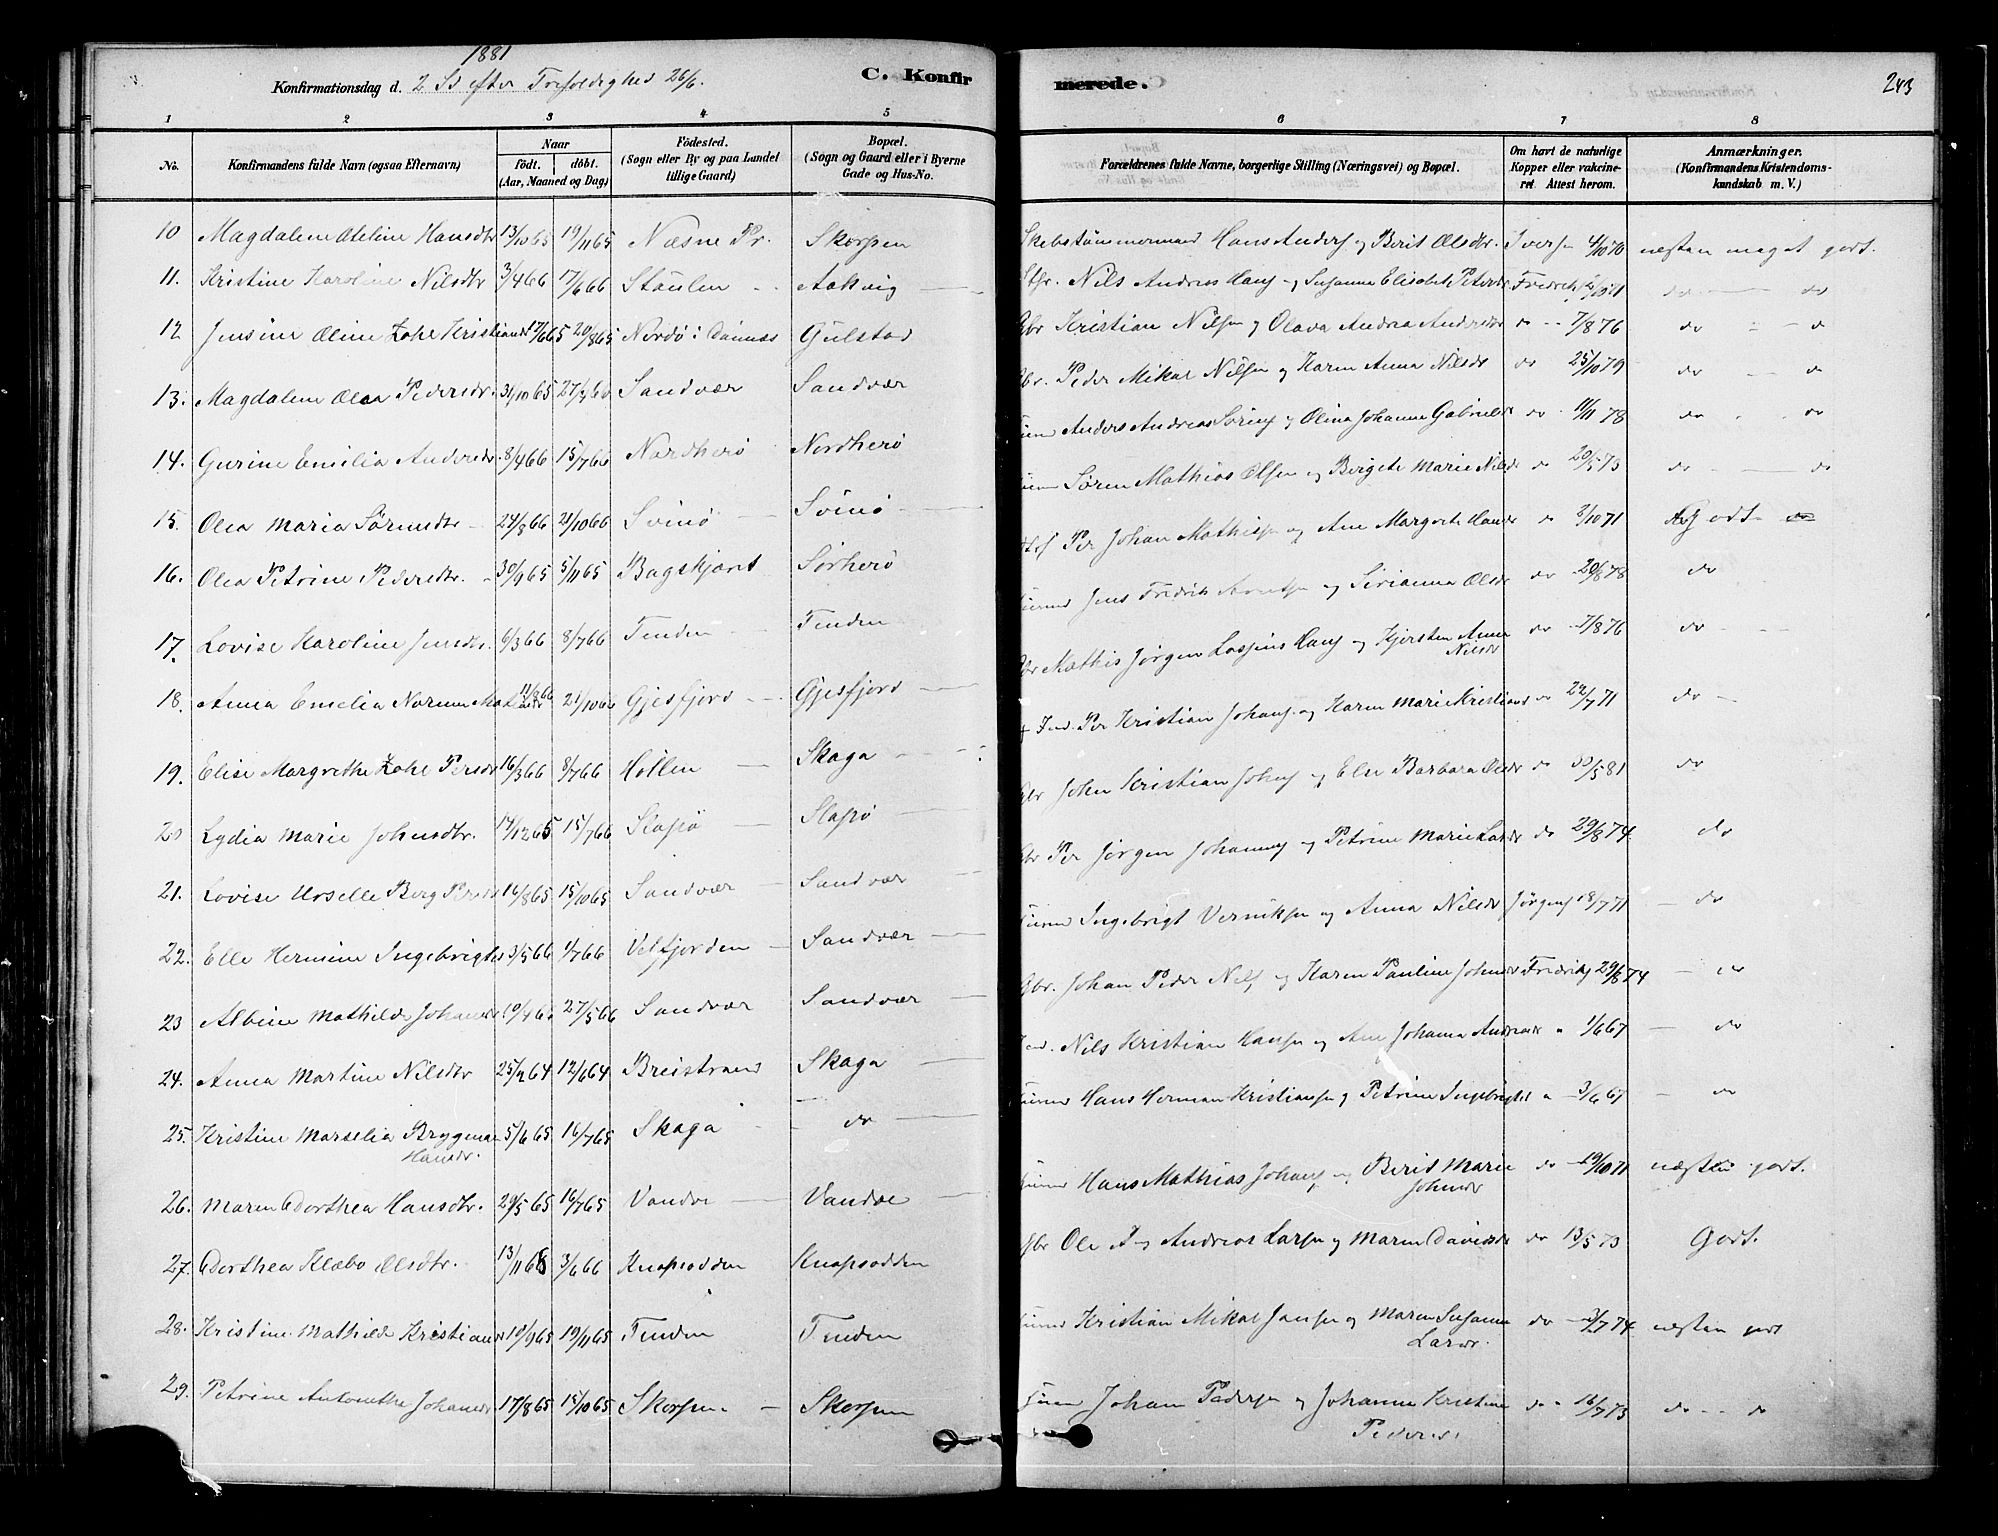 1881
Konfirmationsdag d. 2 Sd efter Trefoldighed 26/6.
C. Konfir
merede.
243
1 2 3 4 5 6 7 8
No. Konfirmandens fulde Navn (ogsaa Efternavn) Naar födt. döbt. (Aar, Maaned og Dag)
Födested. (Sogn eller By og paa Landet tillige Gaard)
Bopæl. (Sogn og Gaard eller i Byerne Gade og Hus-No.
Forældrenes fulde Navne, borgerlige Stilling (Næringsvei) og Bopæl.
Om havt de naturlige Kopper eller vakcineret. Attest herom.
Anmærkninger. (Konfirmandens Kristendomskundskab m. V.)
10 Magdalene Oteline Hansdtr 13/10 65 19/11 65 Næsne Pr. Skorpen Hans Anders og Berit Olsdtr. Iversen 4/10 70 næsten meget godt.
11. Kristine Karoline Nilsdtr 3/4 66 17/6 66 Staulen Aakvig Nils Andreas Hans og Susanna Elisabet Petersdr Fredrik do do
12 Jensine Oline Kristiansd 5 20/8 65 Nordö i Dønnes Gulstad Gbr Kristian Nilsen og Olava Andrea Andersdtr do 7/8 76 do do
13. Magdalene Olea Pedersdr. 31/10 65 Sandvær Sandvær Gbr. Peder Mikal Nilsen og Karen Anna Nilsdr do 25/10 79 do do
14. Gurine Emilia Andersdr. 8/4 66 15/7 66 Nordherö Nordherö Anders Andreas Sörens og Olina Johanna Gabrielsd do 11/11 78 do do
15. Olea Maria Sörensdtr 24/8 66 21/10 66 Svinö Svinö Sören Mathias Olsen og Bergete Marie Nilsdr do 20/5 73 do do
16. Olea Petrine Pedersdtr. 30/9 65 5/11 65 Bagskjæret Sörherö Per Johan Mathisen og Ane Margrete Hansdr do 9/10 71 Godt do
17. Lovise Karoline Jensdtr. 6/3 66 8/7 66 Tenden Tenden Jens Fredrik Arntsen og Sirianna Olsdr do 20/8 78 do
18. Anna Emelia Norum Mathisdr 11/8 66 21/10 66 Gjesfjord Gjesfjord Gbr Mathis Jörgen Hans og Kjersten Anna Nilsdr do 7/8 76 do
19. Elise Margrethe Persdr 16/3 66 8/7 66 Hollen Skaga + Ind. Per Kristian Johans og Karen Marie Kristiansd do 22/7 71 do
20 Lydia Marie Johnsdtr. 17/12 65 15/7 66 Slapö Slapö Gbr John Kristian Johns og Else Barbara Olsdr do 5 81 do
21. Lovise Urselle Berg Persdr 16/8 65 15/10 65 Sandvær Sandvær Gbr Per Jörgen Johannes og Petrine Marie Larsdr do 29/8 74 do
22. Elle Hermine Ingebrigtsd 3/5 66 1/7 66 Velfjorden Sandvær Ingebrigt og Anna Nilsdr Jörgens 18/7 71 do
23 Albine Mathilde Johansdr 10/4 66 27/5 66 Sandvær Sandvær Gbr. Johan Peder Nils og Karen Pauline Johnsdr Fredriks 29/8 74 do
24. Anna Martine Nilsdtr 25/2 64 12/6 64 Breistrand Skaga Ind. Nils Kristian Hansen og Ane Johanna Andreasdr " 1/6 67 do
25. Kristine Marselia Brygman Hansdr. 5/6 65 16/7 65 Skaga do Hans Herman Kristiansen og Petrine Ingebrigtsd " 3/6 67 do
26. Maren Dorthea Hansdtr. 29/5 65 16/7 65 Vandve Vandve Hans Mathias Johans og Berit Marie Johnsdr do 19/10 71 næsten godt.
27. Dorthea Klæbo Olsdtr. 13/11 65 3/6 66 Knapsodden Knapsodden Gbr Ole Andreas Larsen og Maren Davidsdr do 13/5 73 Godt.
28. Kristine Mathilde Kristiansd 10/9 65 19/11 65 Tenden Tenden Kristian Mikal Jansen og Maren Susanna Larsdr. do 7 74 næsten godt
29. Petrine Antonette Johansdr 17/8 65 15/10 65 Skorpen Skorpen Johan Pedersen og Johanna Kristine Pedersd. do 16/7 73 do do